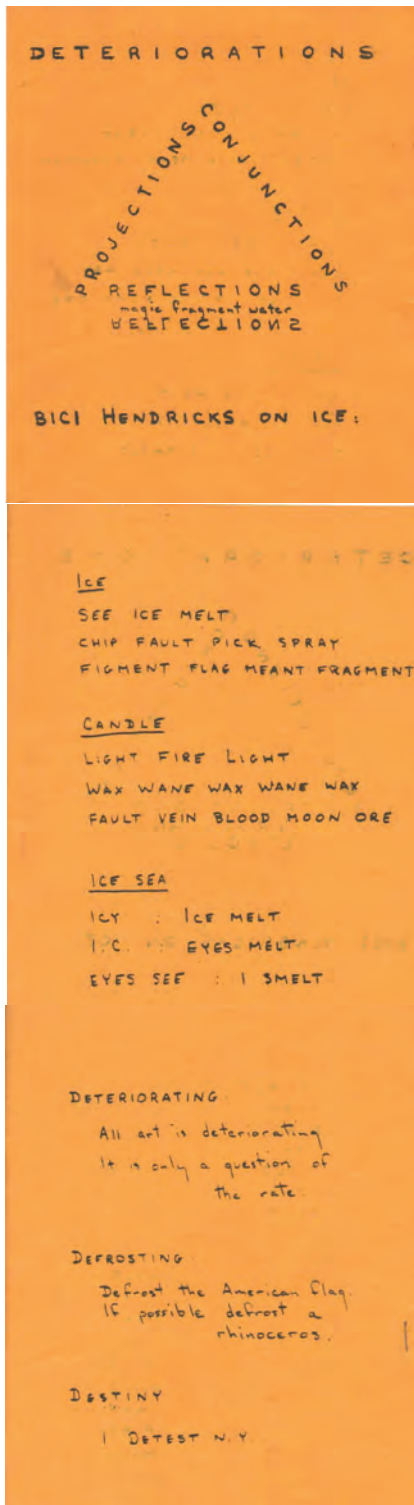 DETERIORATIONS
PROJECTIONS
CONJUNCTIONS
REFLECTIONS
magic fragment water
REFLECTIONS
BICI HENDRICKS ON ICE:
ICE
SEE ICE MELT
CHIP FAULT PICK SPRAY
FIGMENT FLAG MEANT FRAGMENT
CANDLE
LIGHT FIRE LIGHT
WAX WANE WAX WANE WAX
FAULT VEIN BLOOD MOON ORE
ICE SEA
ICY : ICE MELT
I.C. : EYES MELT
EYES SEE : I SMELT
DETERIORATING
All art is deteriorating
It is only a question of
the rate.
DEFROSTING
Defrost the American flag.
If possible defrost a
rhinoceros.
DESTINY
I DETEST N.Y.